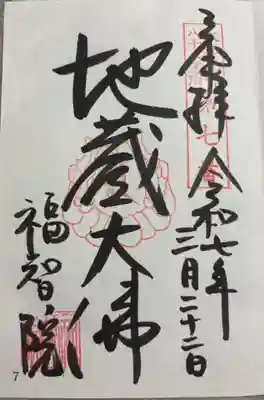 奉拝 令和七年
三月二十二日
地蔵大佛
福智院
7